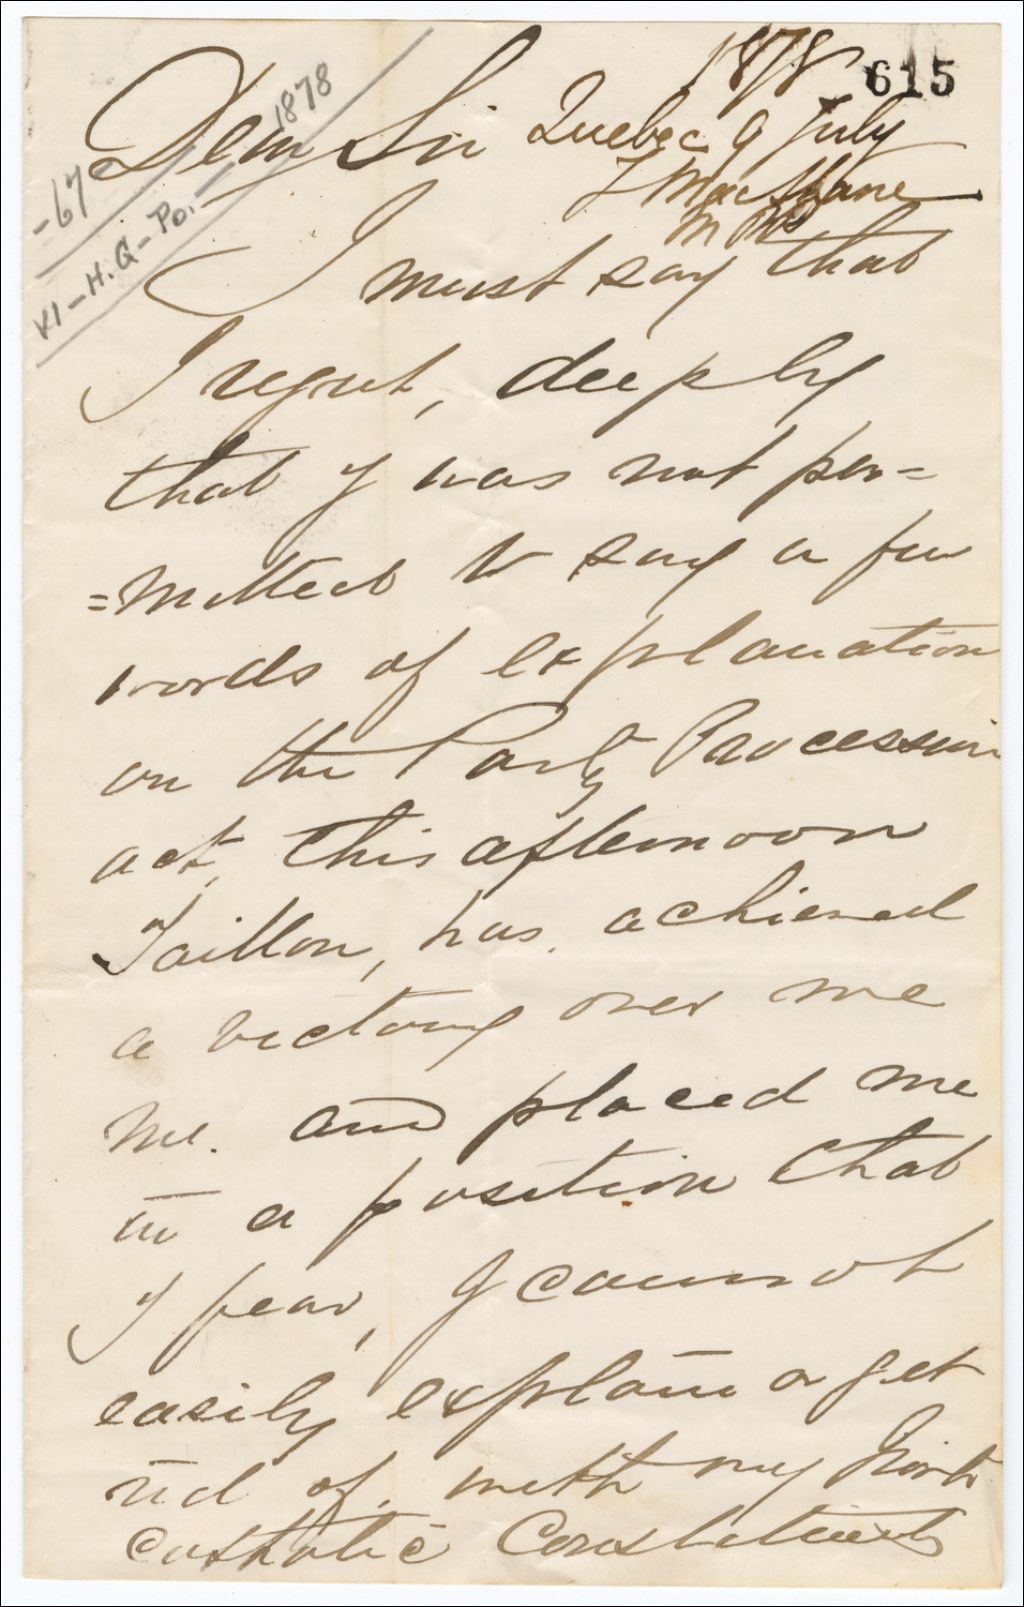 1878 615
Dear Sir Quebec 9 July
1878
J MacShane
-67
M PP
XI-H.Q-Po.
I must say that
I regret, deeply
that I was not per=
=mitted to say a few
words of explanation
on the Party Procession
act, this afternoon
Taillon, has, achieved
a victory over me
me. and placed me
in a position that
I fear, I cannot
easily explain or get
rid of, with my Irish
Catholic Constituents